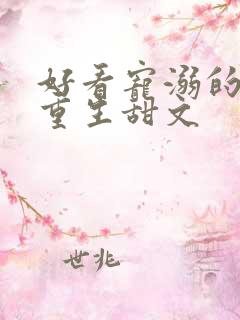 好看寵溺的
重生甜文
世兆